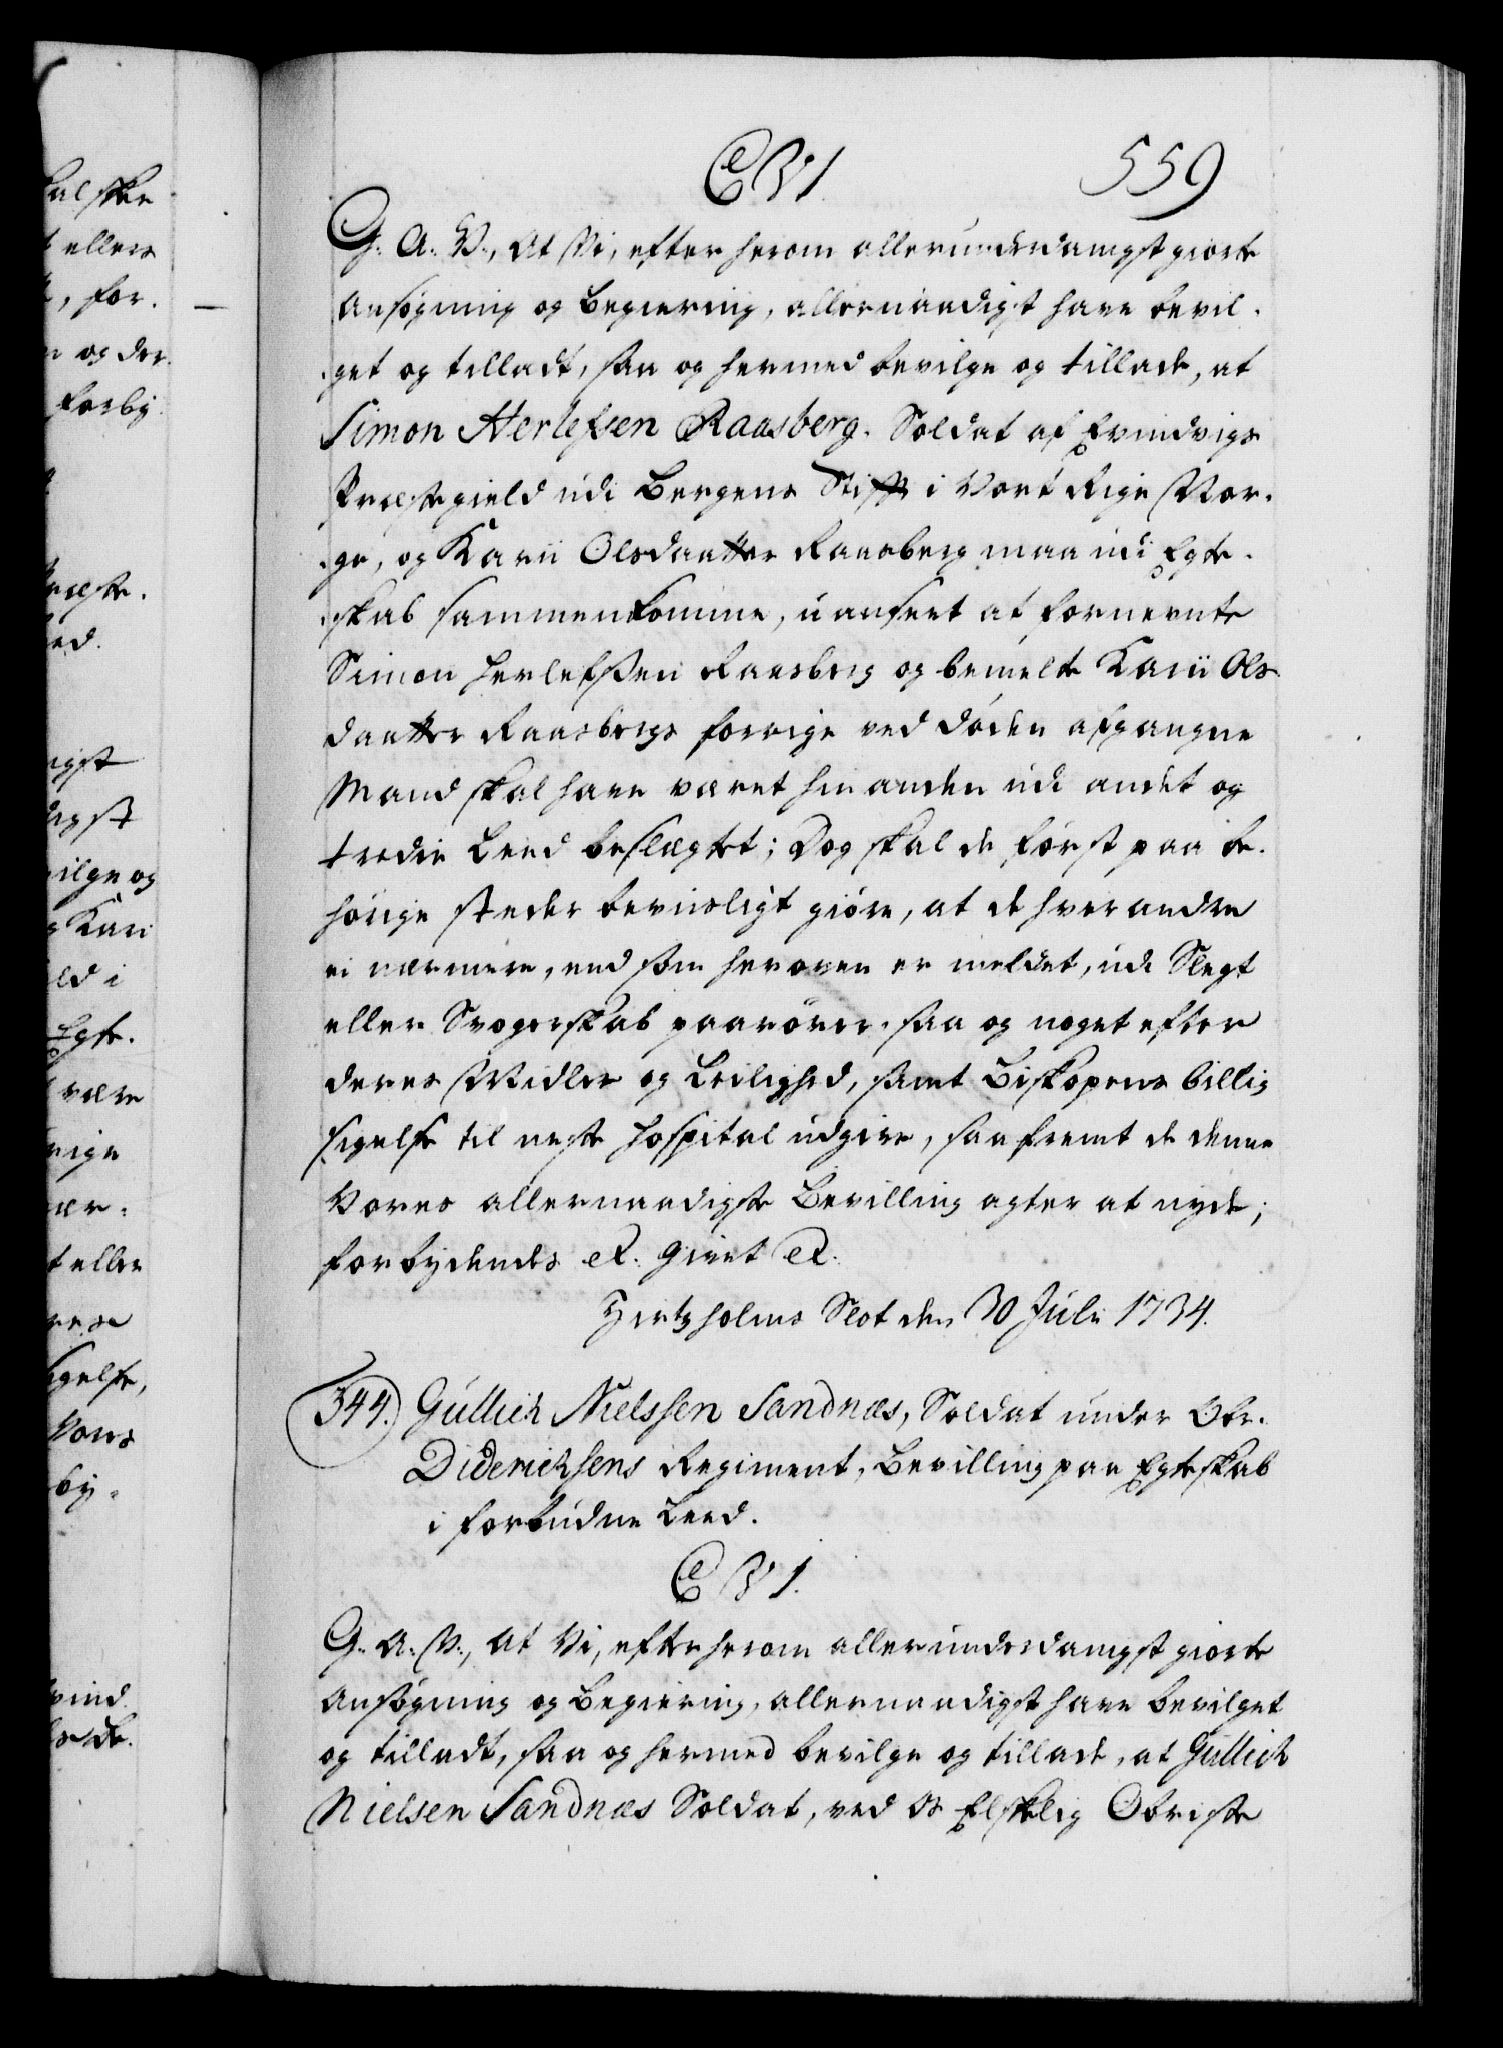 C VI. 559
G. A. V., At Vi, efter herom allerunderdanigst giorte
Ansøgning og Begiering, allernaadigst have bevil-
get og tilladt, saa og hermed bevilge og tillade, at
Simon Herlefsen Raasberg. Soldat af Evindvigs
Præstegield udi Bergens Stift i Vort Rige Nor-
ge, og Karii Olsdaatter Raasberg maa udi Egte-
skab sammenkomme, uanseet at fornevnte
Simon Herlefssen Raasberg og bemelte Karii Ols-
daatter Raasbergs forrige ved døden afgangne
Mand skal have været hinanden udi andet og
tredie Leed beslægtet; Dog skal de først paa be-
hørige steder bevisligt giøre, at de hverandre
ei nærmere, end som heroven er meldet, udi Slegt
eller Svogerskab paarører, saa og noget efter
deres Midler og Leilighed, samt Biskopens billig
sigelse til neste Hospital udgive, saafremt de denne
Vores allernaadigste Bevilling agter at nyde;
forbydendes etc. Givet etc.
Hirtzholms Slot den 30 Juli 1734.
344. Gullich Nielssen Sandnæs, Soldat under Obr.
Diderichsens Regiment, Bevilling paa Egteskab
i forbudne Leed.
C VI.
G. A. V., At Vi, efter herom allerunderdanigst giorte
Ansøgning og Begiering, allernaadigst have bevilget
og tilladt, saa og hermed bevilge og tillade, at Gullich
Nielsen Sandnæs Soldat, ved Os Elskelig Obriste